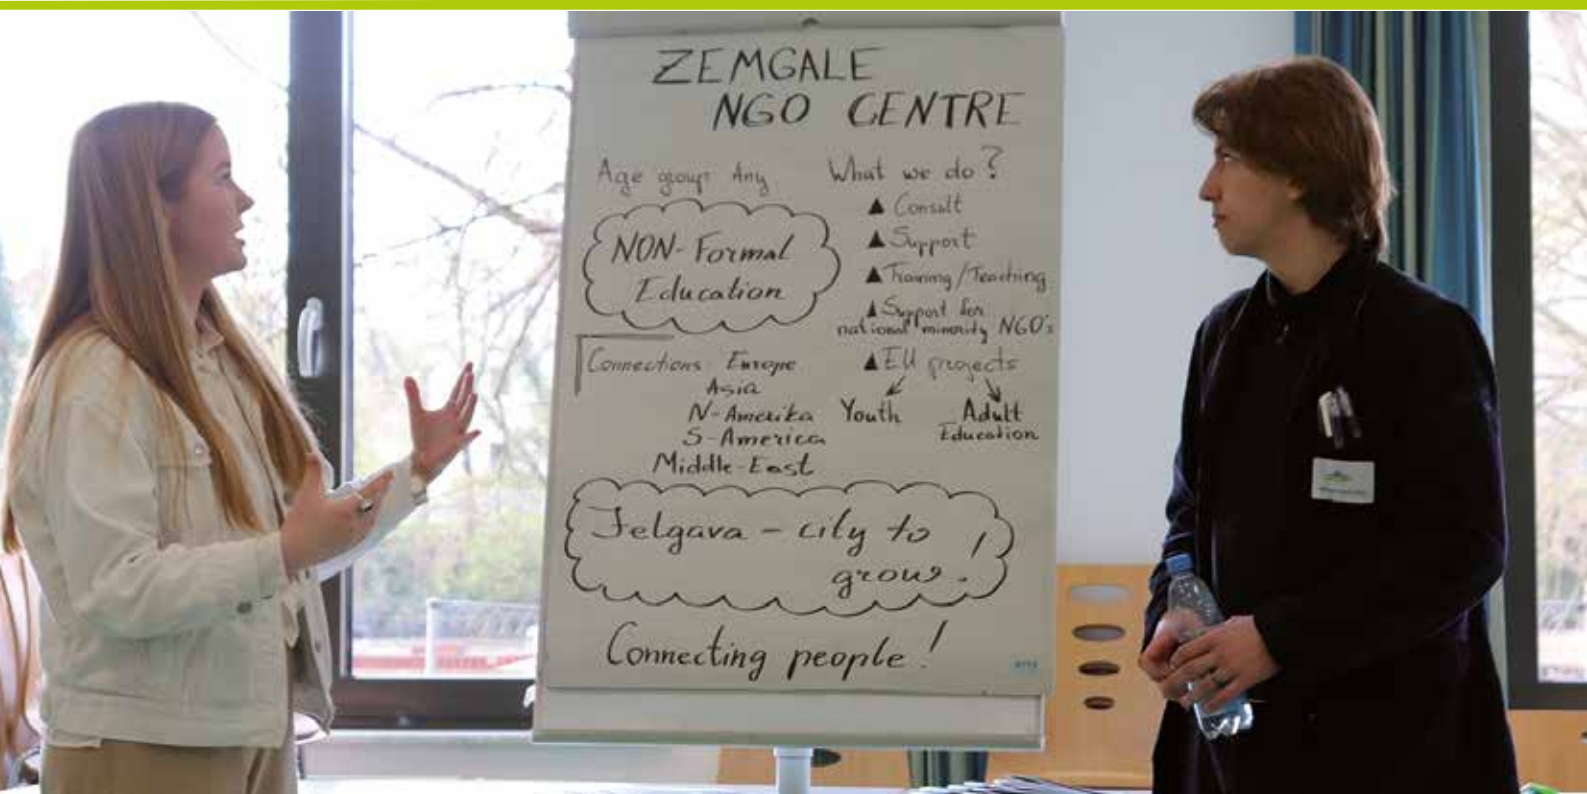 ZEMGALE
NGO CENTRE
Age group: Any
NON-Formal
Education
Connections: Europe
Asia
N-Amerika
S-America
Middle-East
What we do?
▲ Consult
▲ Support
▲ Training/Teaching
▲ Support for
national minority NGO's
▲ EU projects
Youth
Adult
Education
Jelgava - city to
grow!
Connecting people!